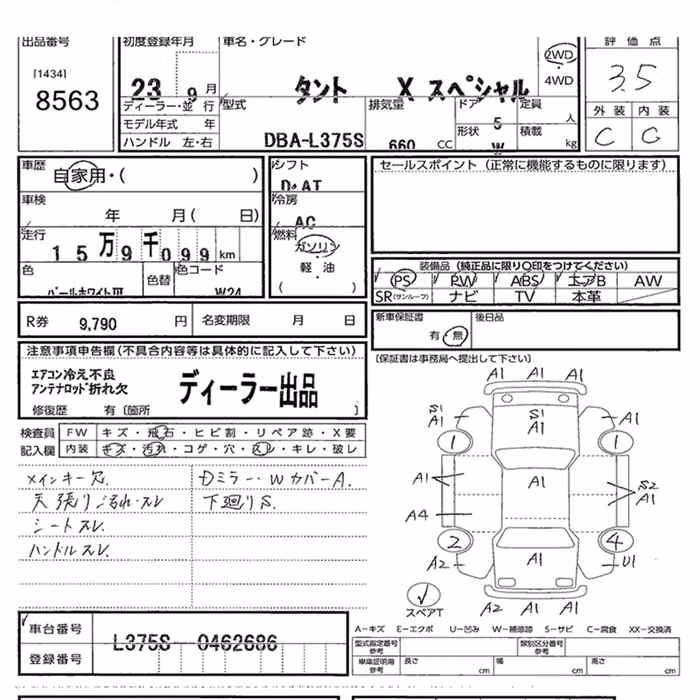 出品番号
[1434]
8563
初度登録年月
23 9月
車名・グレード
タント X スペシャル
2WD
・
4WD
評価点
3.5
外装 内装
C C
ディーラー・並行
モデル年式 年
ハンドル 左・右
型式
DBA-L375S
排気量
660 CC
ドア
5
形状
W
定員
人
積載
kg
車歴
自家用・( )
車検
年 月( 日)
走行
15万9千099km
色
パールホワイトIII
色替
色コード
W24
シフト
D・AT
冷房
AC
燃料
ガソリン
・
軽・油
( )
セールスポイント(正常に機能するものに限ります)
装備品(純正品に限り○印をつけてください)
PS PW ABS エアB AW
SR(サンルーフ) ナビ TV 本革
R券 9,790 円
名変期限 月 日
新車保証書
有・無
後日品
(保証書は事務局へ提出して下さい)
注意事項申告欄(不具合内容等は具体的に記入して下さい)
エアコン冷え不良
アンテナロッド折れ欠
ディーラー出品
修復歴 有〔箇所 〕
検査員
記入欄
FW キズ・飛石・ヒビ割・リペア跡・X要
内装 キズ・汚れ・コゲ・穴・スレ・キレ・破レ
メインキー欠.
天張り汚れ・スレ
シートスレ
ハンドルスレ
Dミラー・WカバーA.
下廻りS.
A1 A1 A1
S1
A1
S1
A1
A1
1 1
A1 A1
S2
A1
A4
2 4
A2 A1 U1
スペアT
A2 A1 A1
車台番号
L375S-0462686
登録番号
A－キズ E－エクボ U－凹み W－補修跡 S－サビ C－腐食 XX－交換済
型式指定番号
参考
類別区分番号
参考
車庫証明用
参考
長さ
cm
幅
cm
高さ
cm